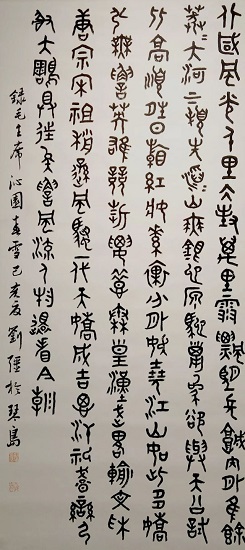 北國風光千里冰封萬里雪飄望長城內外惟餘
莽莽大河上下頓失滔滔山舞銀蛇原馳蠟象欲與天公試
比高須晴日看紅妝素裹分外妖嬈江山如此多嬌
引無數英雄競折腰惜秦皇漢武略輸文采
唐宗宋祖稍遜風騷一代天驕成吉思汗只識彎弓
射大鵰俱往矣數風流人物還看今朝
錄毛主席沁園春雪己亥夏劉疆於琴島